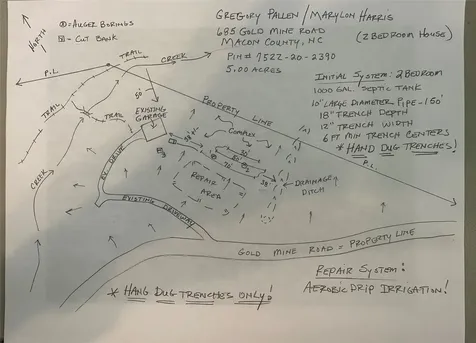 Ⓐ = AUGER BORINGS
☒ = CUT BANK
NORTH
GREGORY PALLEN / MARYLON HARRIS
685 GOLD MINE ROAD
(2 BEDROOM HOUSE)
MACON COUNTY, NC
PIN # 7522-20-2390
5.00 ACRES
INITIAL SYSTEM: 2 BEDROOM
1000 GAL. SEPTIC TANK
10" LARGE DIAMETER PIPE - 150'
18" TRENCH DEPTH
12" TRENCH WIDTH
6 FT MIN TRENCH CENTERS
* HAND DUG TRENCHES!
P.L.
TRAIL
CREEK
TRAIL
TRAIL
50'
EXISTING
GARAGE
PROPERTY LINE
COMPLEX
P.L.
EX. DRIVE
REPAIR
AREA
DRAINAGE
DITCH
CREEK
EXISTING DRIVEWAY
GOLD MINE ROAD = PROPERTY LINE
REPAIR SYSTEM:
AEROBIC DRIP IRRIGATION!
* HAND DUG TRENCHES ONLY!